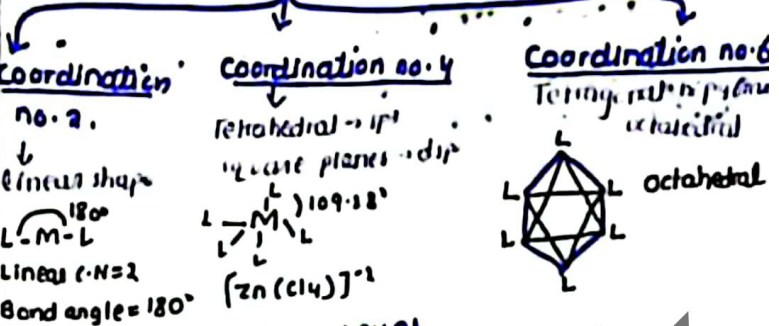 Coordination
no. 2.
linear shape
180°
L-M-L
Linear C.N=2
Bond angle = 180°
Coordination no. 4
Tetrahedral → sp³
square planes → dsp
L
L M )109.28°
L L L
[Zn(Cl4)]⁻²
Coordination no. 6
octahedral
L
L L octahedral
L L
L